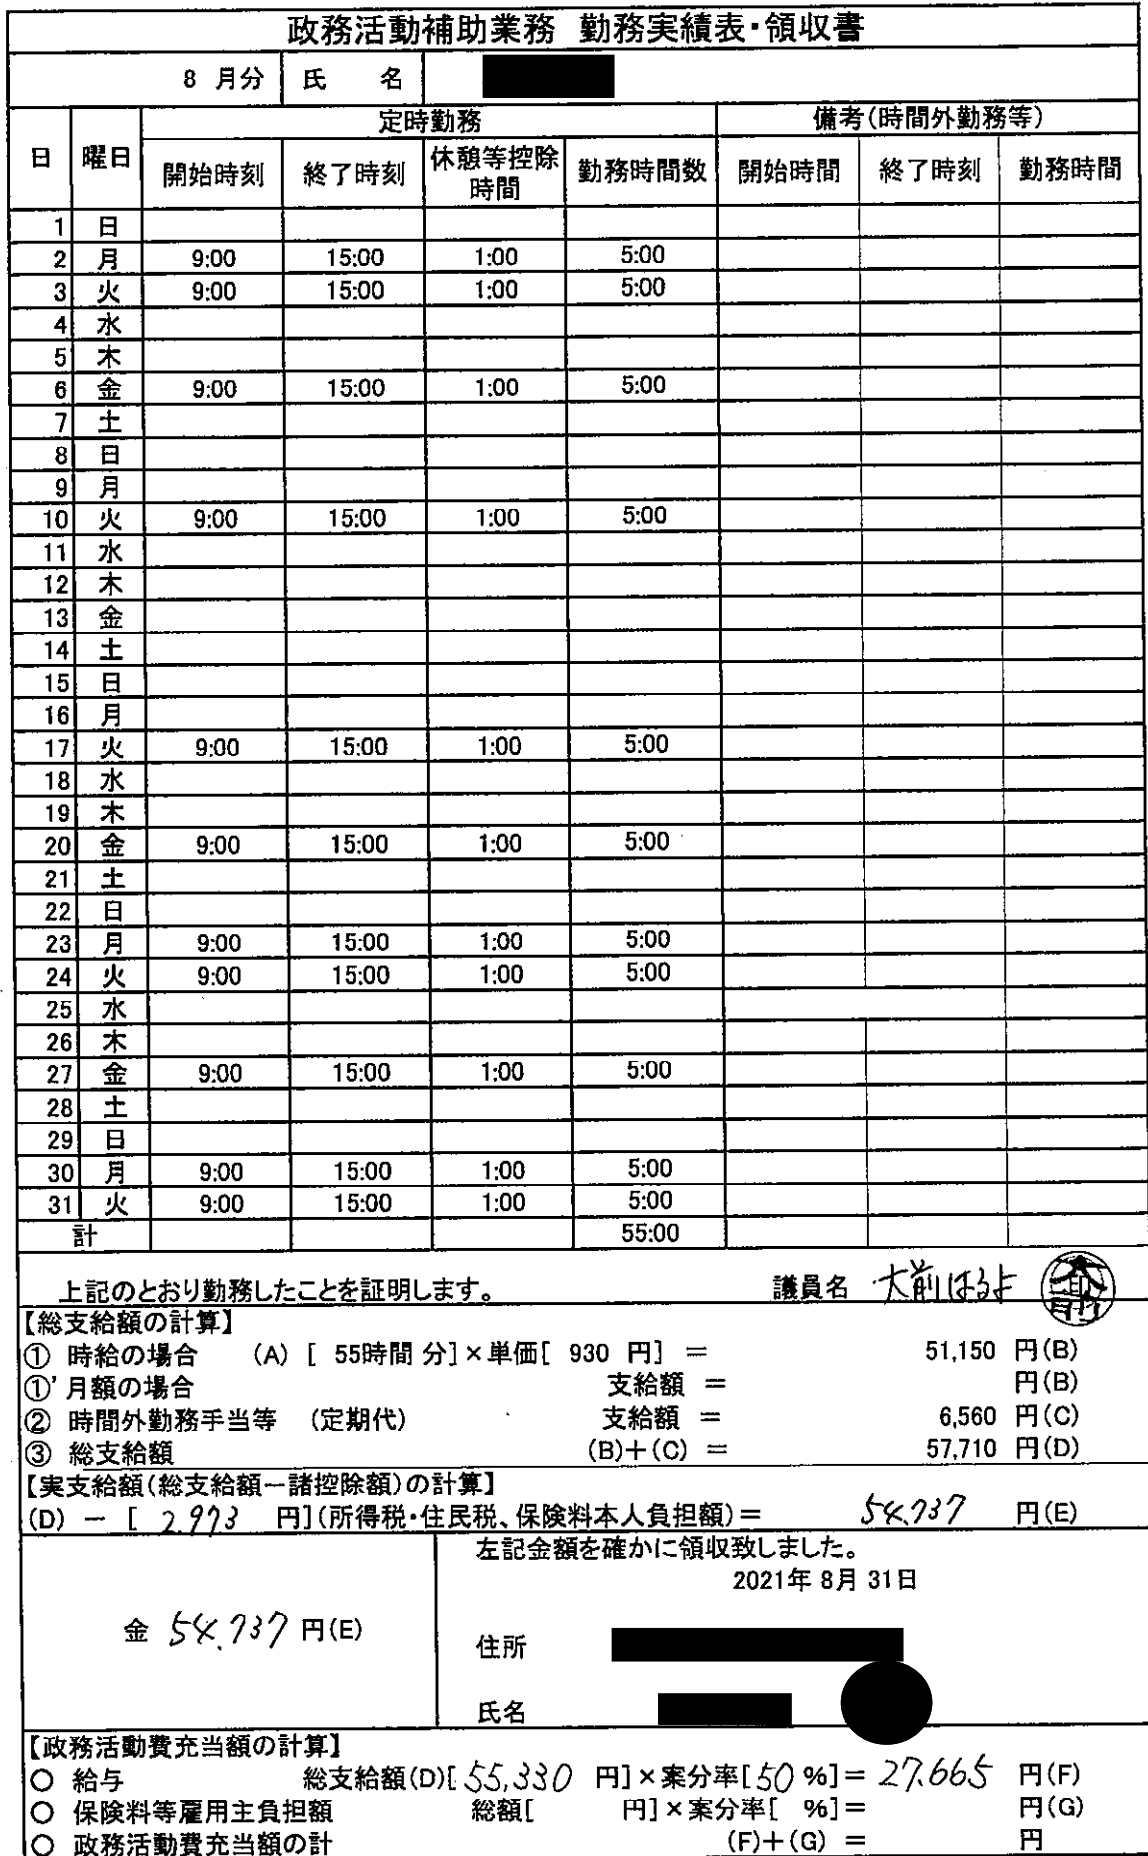 政務活動補助業務 勤務実績表・領収書
8 月分 氏 名
日 曜日 定時勤務 備考(時間外勤務等)
開始時刻 終了時刻 休憩等控除時間 勤務時間数 開始時間 終了時刻 勤務時間
1 日
2 月 9:00 15:00 1:00 5:00
3 火 9:00 15:00 1:00 5:00
4 水
5 木
6 金 9:00 15:00 1:00 5:00
7 土
8 日
9 月
10 火 9:00 15:00 1:00 5:00
11 水
12 木
13 金
14 土
15 日
16 月
17 火 9:00 15:00 1:00 5:00
18 水
19 木
20 金 9:00 15:00 1:00 5:00
21 土
22 日
23 月 9:00 15:00 1:00 5:00
24 火 9:00 15:00 1:00 5:00
25 水
26 木
27 金 9:00 15:00 1:00 5:00
28 土
29 日
30 月 9:00 15:00 1:00 5:00
31 火 9:00 15:00 1:00 5:00
計 55:00
上記のとおり勤務したことを証明します。 議員名 大前はるよ 大前印
【総支給額の計算】
① 時給の場合 (A) [ 55時間 分]×単価[ 930 円] = 51,150 円(B)
①' 月額の場合 支給額 = 円(B)
② 時間外勤務手当等 (定期代) 支給額 = 6,560 円(C)
③ 総支給額 (B)+(C) = 57,710 円(D)
【実支給額(総支給額－諸控除額)の計算】
(D) － [ 2.973 円](所得税・住民税、保険料本人負担額)= 54.737 円(E)
左記金額を確かに領収致しました。
2021年 8月 31日
金 54.737 円(E)
住所
氏名
【政務活動費充当額の計算】
○ 給与 総支給額(D)[ 55,330 円]×案分率[ 50 %]= 27.665 円(F)
○ 保険料等雇用主負担額 総額[ 円]×案分率[ %]= 円(G)
○ 政務活動費充当額の計 (F)+(G) = 円